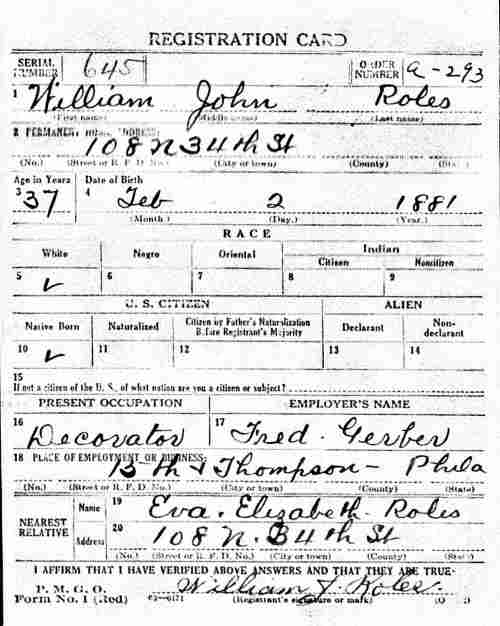 REGISTRATION CARD
SERIAL NUMBER 645 ORDER NUMBER a-293
1 William John Roles
(First name) (Middle name) (Last name)
2 PERMANENT HOME ADDRESS:
108 N 34th St
(No.) (Street or R. F. D. No.) (City or town) (County) (State)
Age in Years Date of Birth
3 37 4 Feb 2 1881
(Month) (Day.) (Year.)
RACE
White Negro Oriental Indian
Citizen Noncitizen
5 ✓ 6 7 8 9
U. S. CITIZEN ALIEN
Native Born Naturalized Citizen by Father's Naturalization Before Registrant's Majority Declarant Non-declarant
10 ✓ 11 12 13 14
15
If not a citizen of the U. S., of what nation are you a citizen or subject?
PRESENT OCCUPATION EMPLOYER'S NAME
16 Decorator 17 Fred. Gerber
18 PLACE OF EMPLOYMENT OR BUSINESS:
15th & Thompson - Phila
(No.) (Street or R. F. D. No.) (City or town) (County) (State)
NEAREST RELATIVE Name 19 Eva. Elizabeth. Roles
Address 20 108 N. 34th St
(No.) (Street or R. F. D. No.) (City or town) (County) (State)
I AFFIRM THAT I HAVE VERIFIED ABOVE ANSWERS AND THAT THEY ARE TRUE
P. M. G. O. William J. Roles
Form No. 1 (Red) (Registrant's signature or mark)